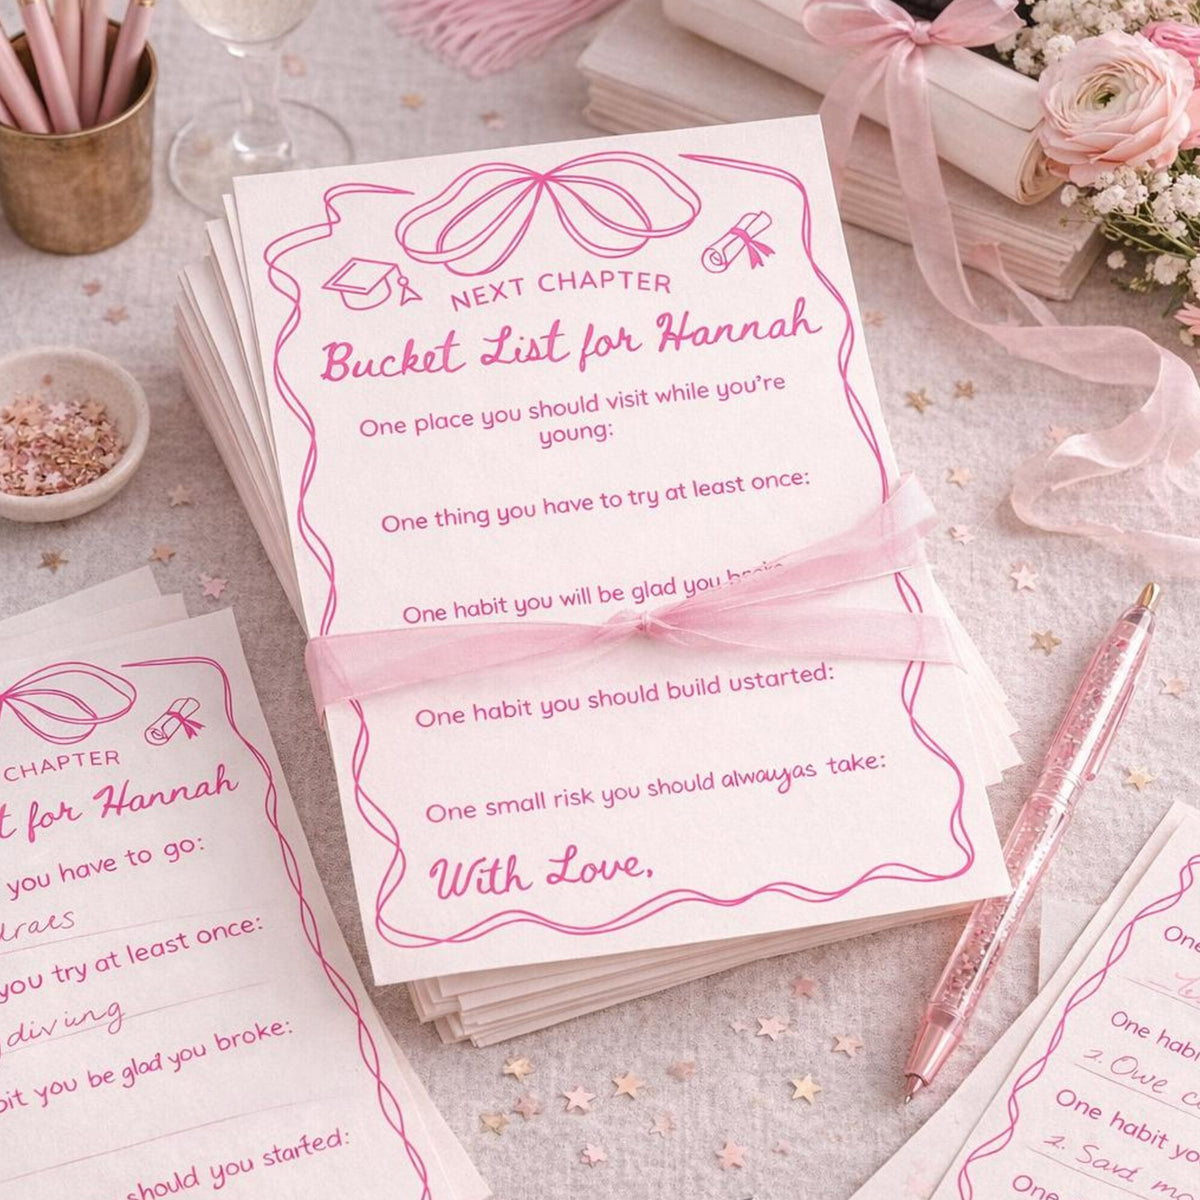 NEXT CHAPTER
Bucket List for Hannah
One place you should visit while you're
young:
One thing you have to try at least once:
One habit you will be glad you broke
One habit you should build ustarted:
One small risk you should alwouyas take:
With Love,
CHAPTER
for Hannah
you have to go:
you try at least once:
diving
you be glad you broke:
should you started:
One habi
2. Owe
One habit yo
2. Savt
One